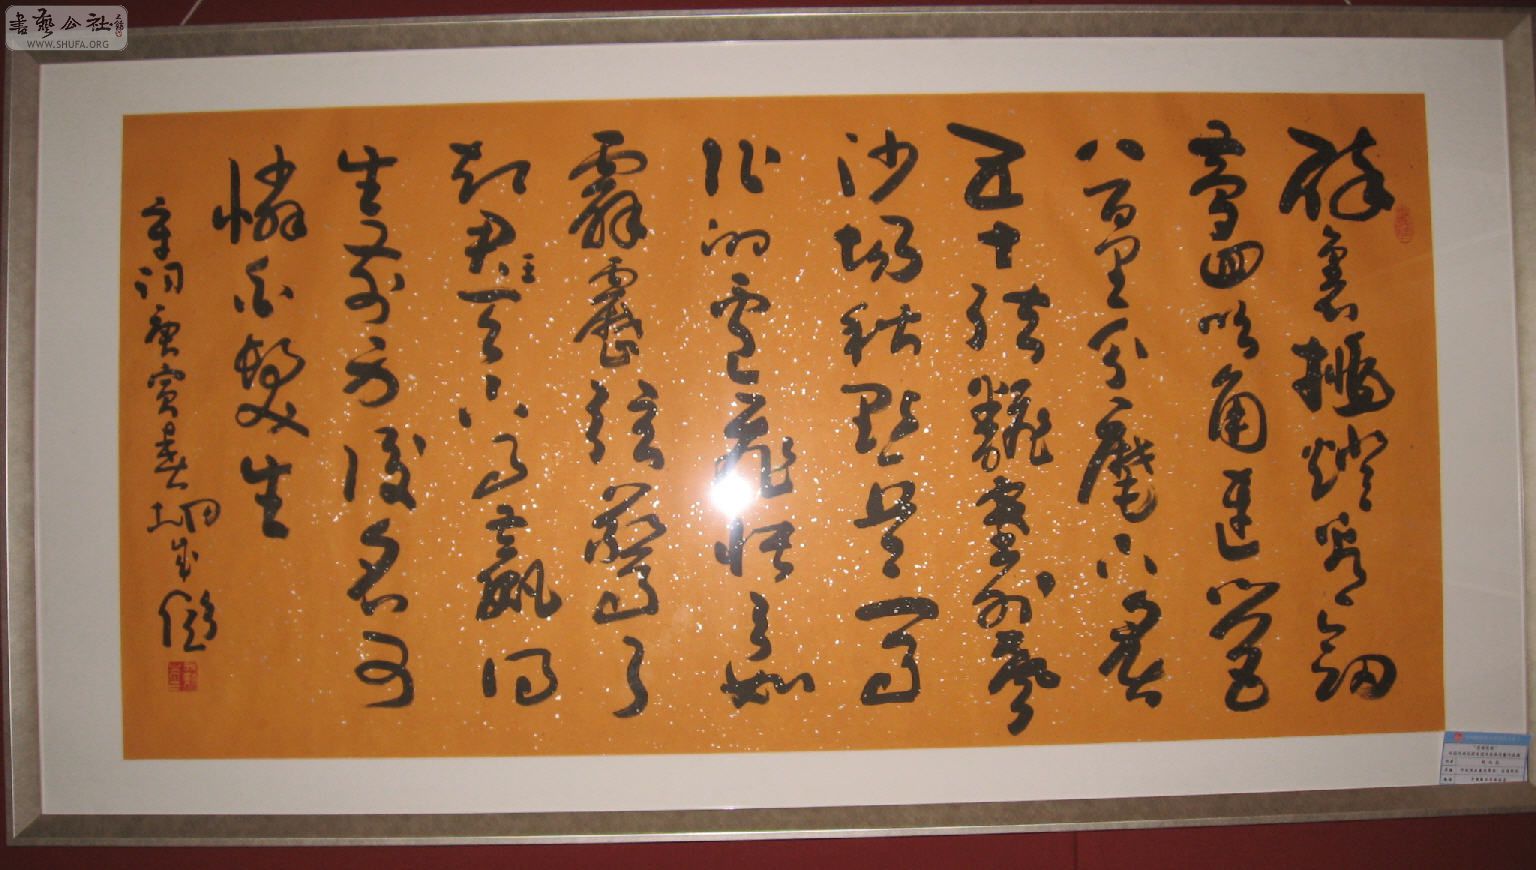 書藝公社
WWW.SHUFA.ORG
醉裏挑燈看劍
夢回吹角連營
八百里分麾下炙
五十弦翻塞外聲
沙場秋點兵馬
作的盧飛快弓如
霹靂弦驚了
却君王天下事贏得
生前身後名可
憐白髮生
辛詞庚寅春